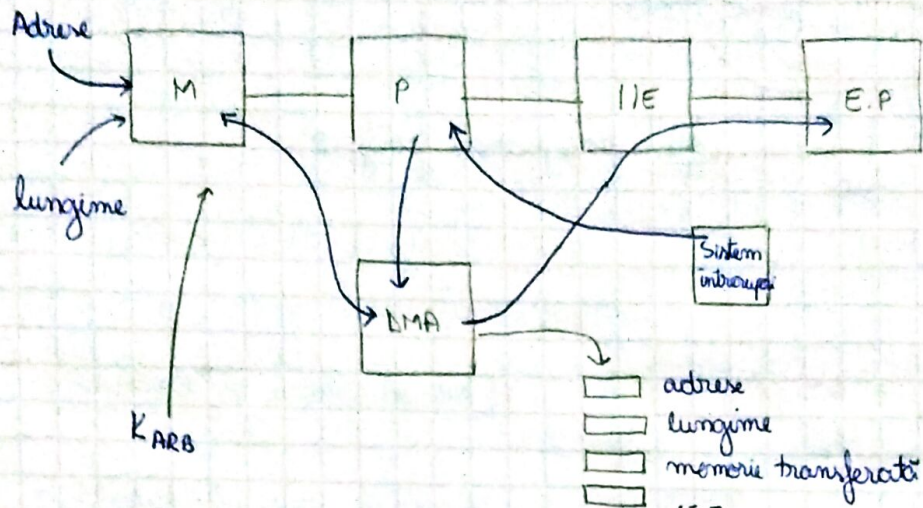 Adrese
M
P
I/E
E.P
lungime
Sistem
întreruperi
DMA
adrese
KARB
lungime
memorie transferată